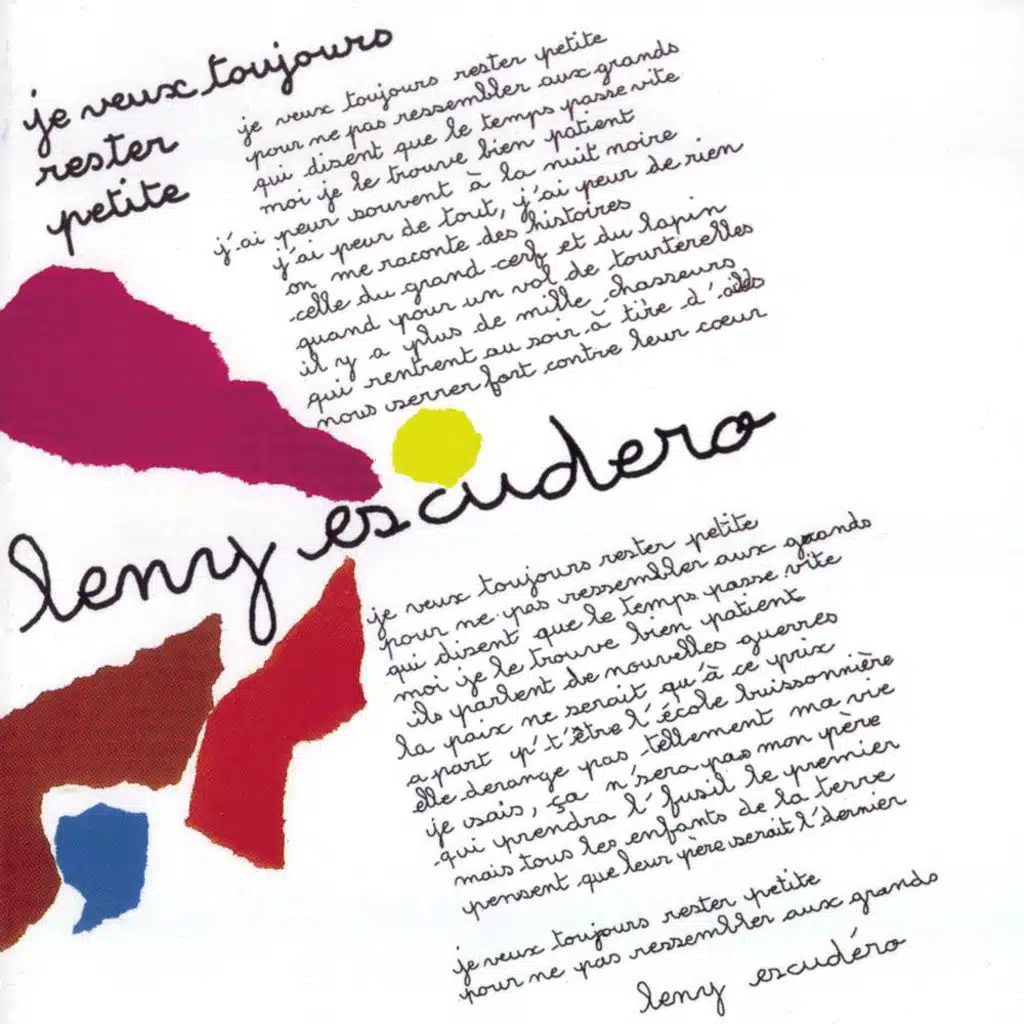 je veux toujours
rester
petite
je veux toujours rester petite
pour ne pas ressembler aux grands
qui disent que le temps passe vite
moi je le trouve bien patient
j'ai peur souvent à la nuit noire
j'ai peur de tout, j'ai peur de rien
on me raconte des histoires
celle du grand cerf et du lapin
quand pour un vol de tourterelles
il y a plus de mille chasseurs
qui rentrent au soir à tire d'ailes
nous serrer fort contre leur coeur
leny escudero
je veux toujours rester petite
pour ne pas ressembler aux grands
qui disent que le temps passe vite
moi je le trouve bien patient
ils parlent de nouvelles guerres
la paix ne serait qu'à ce prix
a part p't'être l'école buissonnière
elle derange pas tellement ma vie
je sais, ça n'sera pas mon père
qui prendra l'fusil le premier
mais tous les enfants de la terre
pensent que leur père serait l'dernier
je veux toujours rester petite
pour ne pas ressembler aux grands
leny escudéro